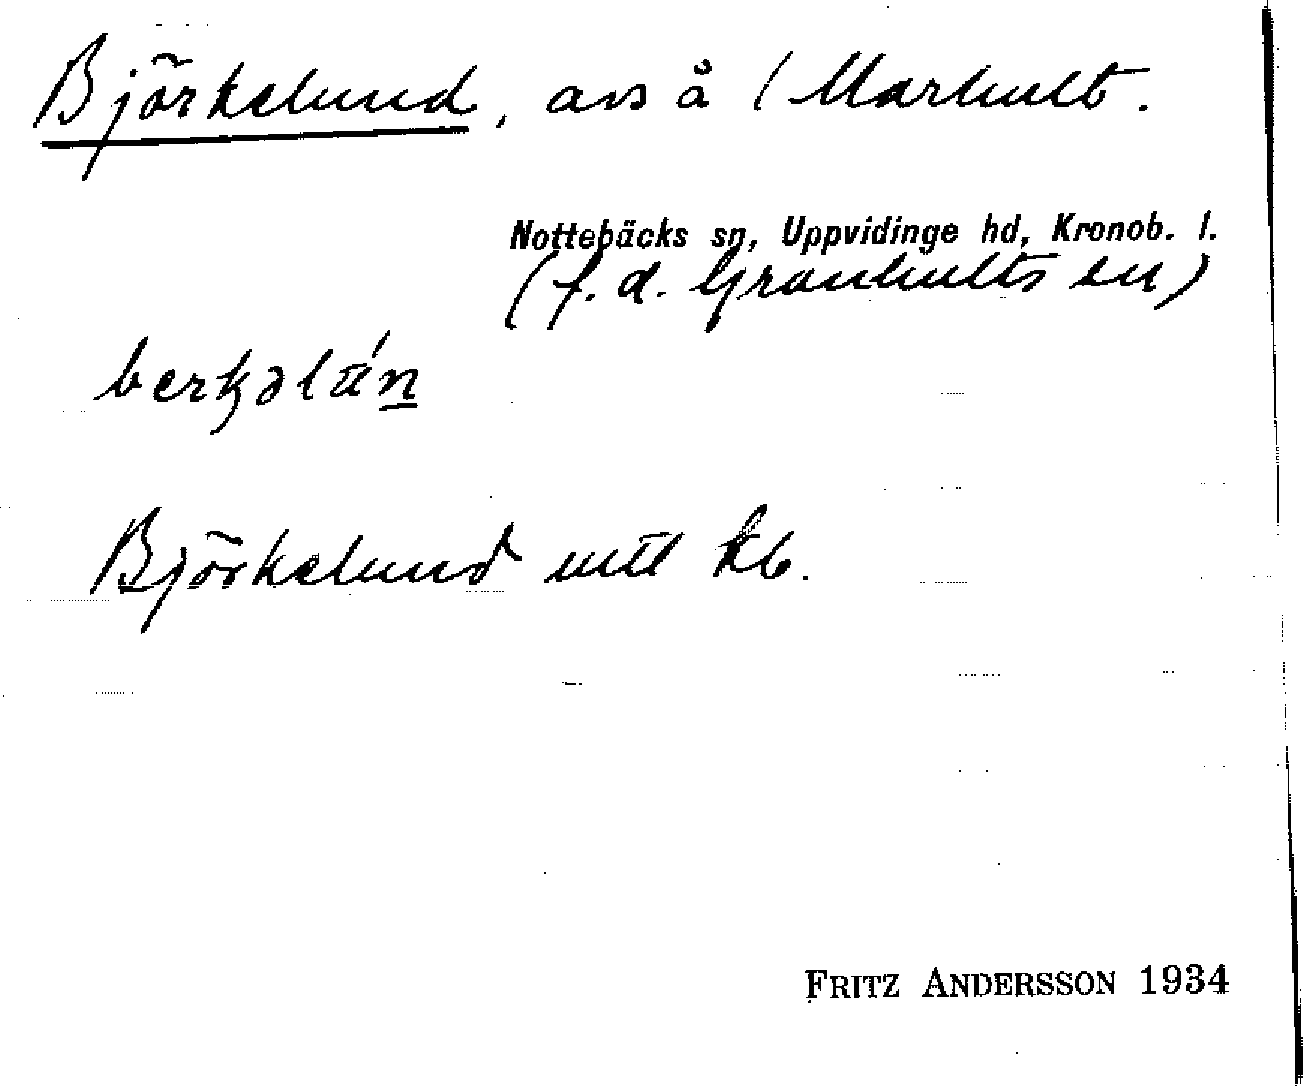 Björkelund, avs å 1 Marhult.
Nottebäcks sn, Uppvidinge hd, Kronob. l.
(f. d. Granhults sn)
Björkelund mtl kb.
FRITZ ANDERSSON 1934